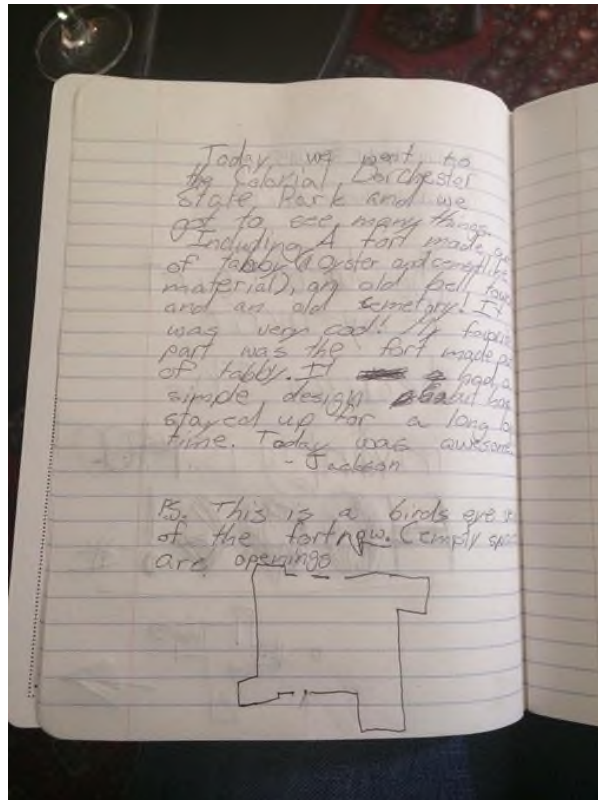 Today we went to
the Colonial Dorchester
State Park and we
got to see many things.
Including A fort made
of tabby (A oyster and cement like
material), an old bell tow
and an old cemetary! It
was very cool! My favorite
part was the fort made
of tabby. It had a
simple design but has
stayed up for a long
time. Today was awesome
- Jackson
P.S. This is a birds eye
of the fort now. (empty spac
are openings